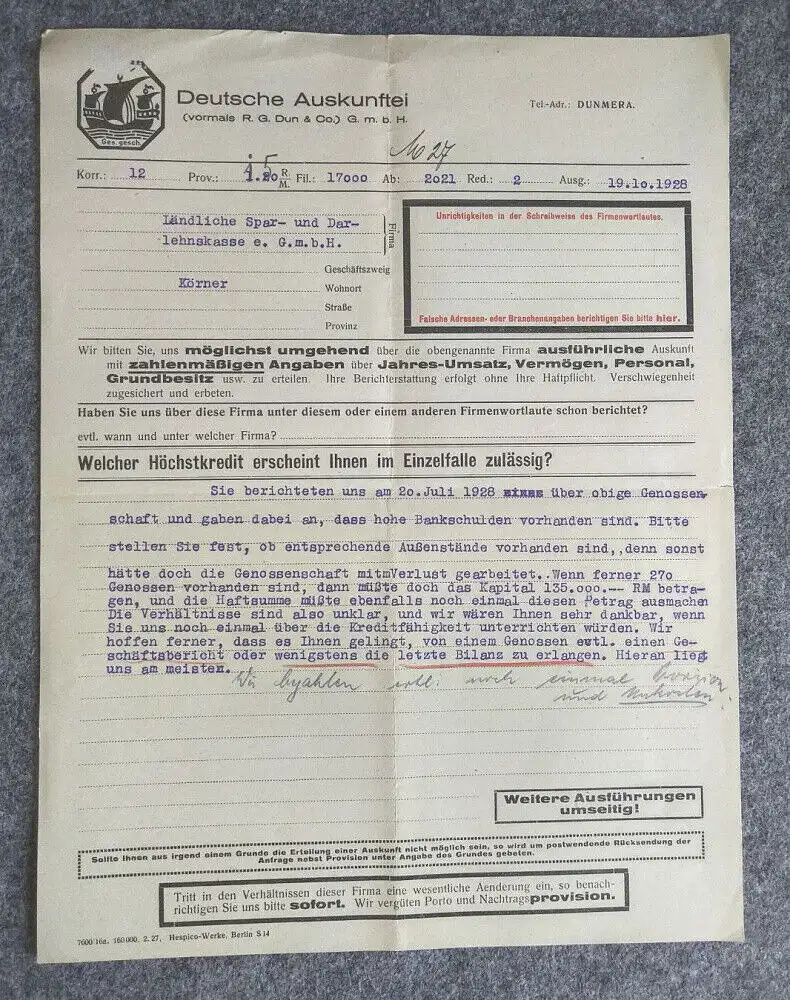 Ges. gesch.
Deutsche Auskunftei
(vormals R. G. Dun & Co.) G. m. b. H.
Tel.-Adr.: DUNMERA.
Korr.: 12 Prov.: 1.20 R.M. Fil.: 17000 Ab: 2021 Red.: 2 Ausg.: 19.10.1928
Ländliche Spar- und Dar-
lehnskasse e. G.m.b.H.
Firma
Geschäftszweig
Körner
Wohnort
Straße
Provinz
Unrichtigkeiten in der Schreibweise des Firmenwortlautes.
Falsche Adressen- oder Branchenangaben berichtigen Sie bitte hier.
Wir bitten Sie, uns möglichst umgehend über die obengenannte Firma ausführliche Auskunft
mit zahlenmäßigen Angaben über Jahres-Umsatz, Vermögen, Personal,
Grundbesitz usw. zu erteilen. Ihre Berichterstattung erfolgt ohne Ihre Haftpflicht. Verschwiegenheit
zugesichert und erbeten.
Haben Sie uns über diese Firma unter diesem oder einem anderen Firmenwortlaute schon berichtet?
evtl. wann und unter welcher Firma?
Welcher Höchstkredit erscheint Ihnen im Einzelfalle zulässig?
Sie berichteten uns am 20. Juli 1928 über obige Genossen-
schaft und gaben dabei an, dass hohe Bankschulden vorhanden sind. Bitte
stellen Sie fest, ob entsprechende Außenstände vorhanden sind, denn sonst
hätte doch die Genossenschaft mitmVerlust gearbeitet. Wenn ferner 270
Genossen vorhanden sind, dann müßte doch das Kapital 135.000.-- RM betra-
gen, und die Haftsumme müßte ebenfalls noch einmal diesen Petrag ausmachen
Die Verhältnisse sind also unklar, und wir wären Ihnen sehr dankbar, wenn
Sie uns noch einmal über die Kreditfähigkeit unterrichten würden. Wir
hoffen ferner, dass es Ihnen gelingt, von einem Genossen evtl. einen Ge-
schäftsbericht oder wenigstens die letzte Bilanz zu erlangen. Hieran liegt
uns am meisten.
Wir bezahlen evtl. noch einmal Provision
und Unkosten.
Weitere Ausführungen
umseitig!
Sollte Ihnen aus irgend einem Grunde die Erteilung einer Auskunft nicht möglich sein, so wird um postwendende Rücksendung der
Anfrage nebst Provision unter Angabe des Grundes gebeten.
Tritt in den Verhältnissen dieser Firma eine wesentliche Aenderung ein, so benach-
richtigen Sie uns bitte sofort. Wir vergüten Porto und Nachtragsprovision.
7600 16a. 160000. 2. 27. Hespico-Werke, Berlin S 14